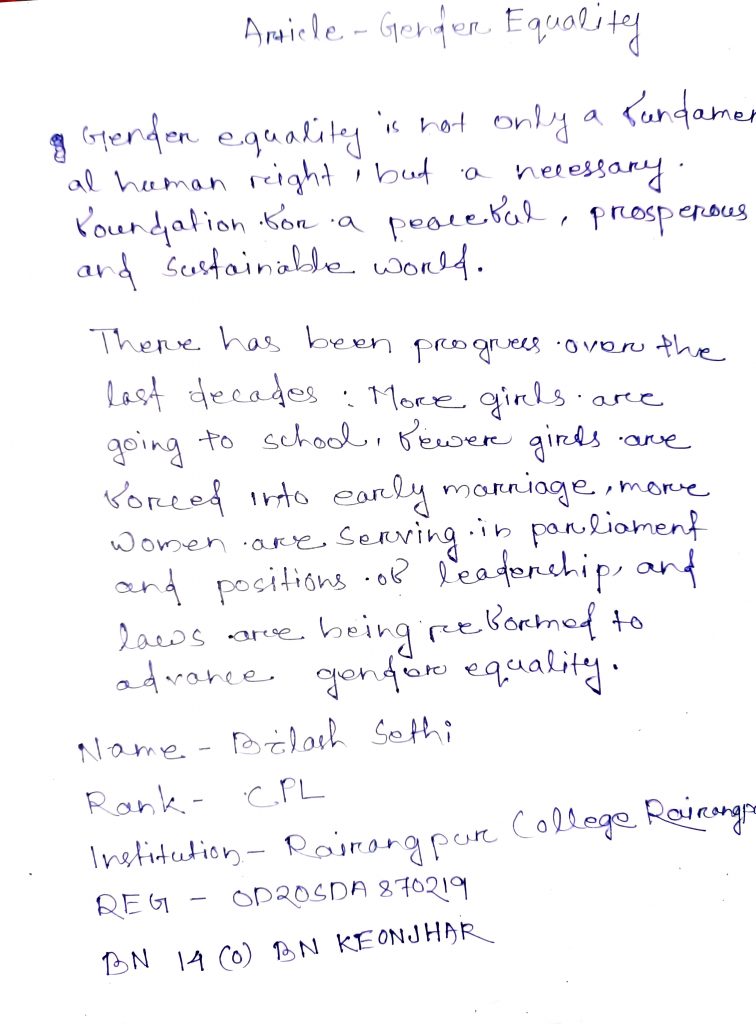 Article - Gender Equality
Gender equality is not only a fundamen
al human right, but a necessary
foundation for a peaceful, prosperous
and sustainable world.
There has been progress over the
last decades : More girls are
going to school, fewer girls are
forced into early marriage, more
women are serving in parliament
and positions of leadership, and
laws are being reformed to
advance gender equality.
Name - Bilash Sethi
Rank - CPL
Institution - Rairangpur College Rairangp
REG - OD20SDA870219
BN 14 (O) BN KEONJHAR